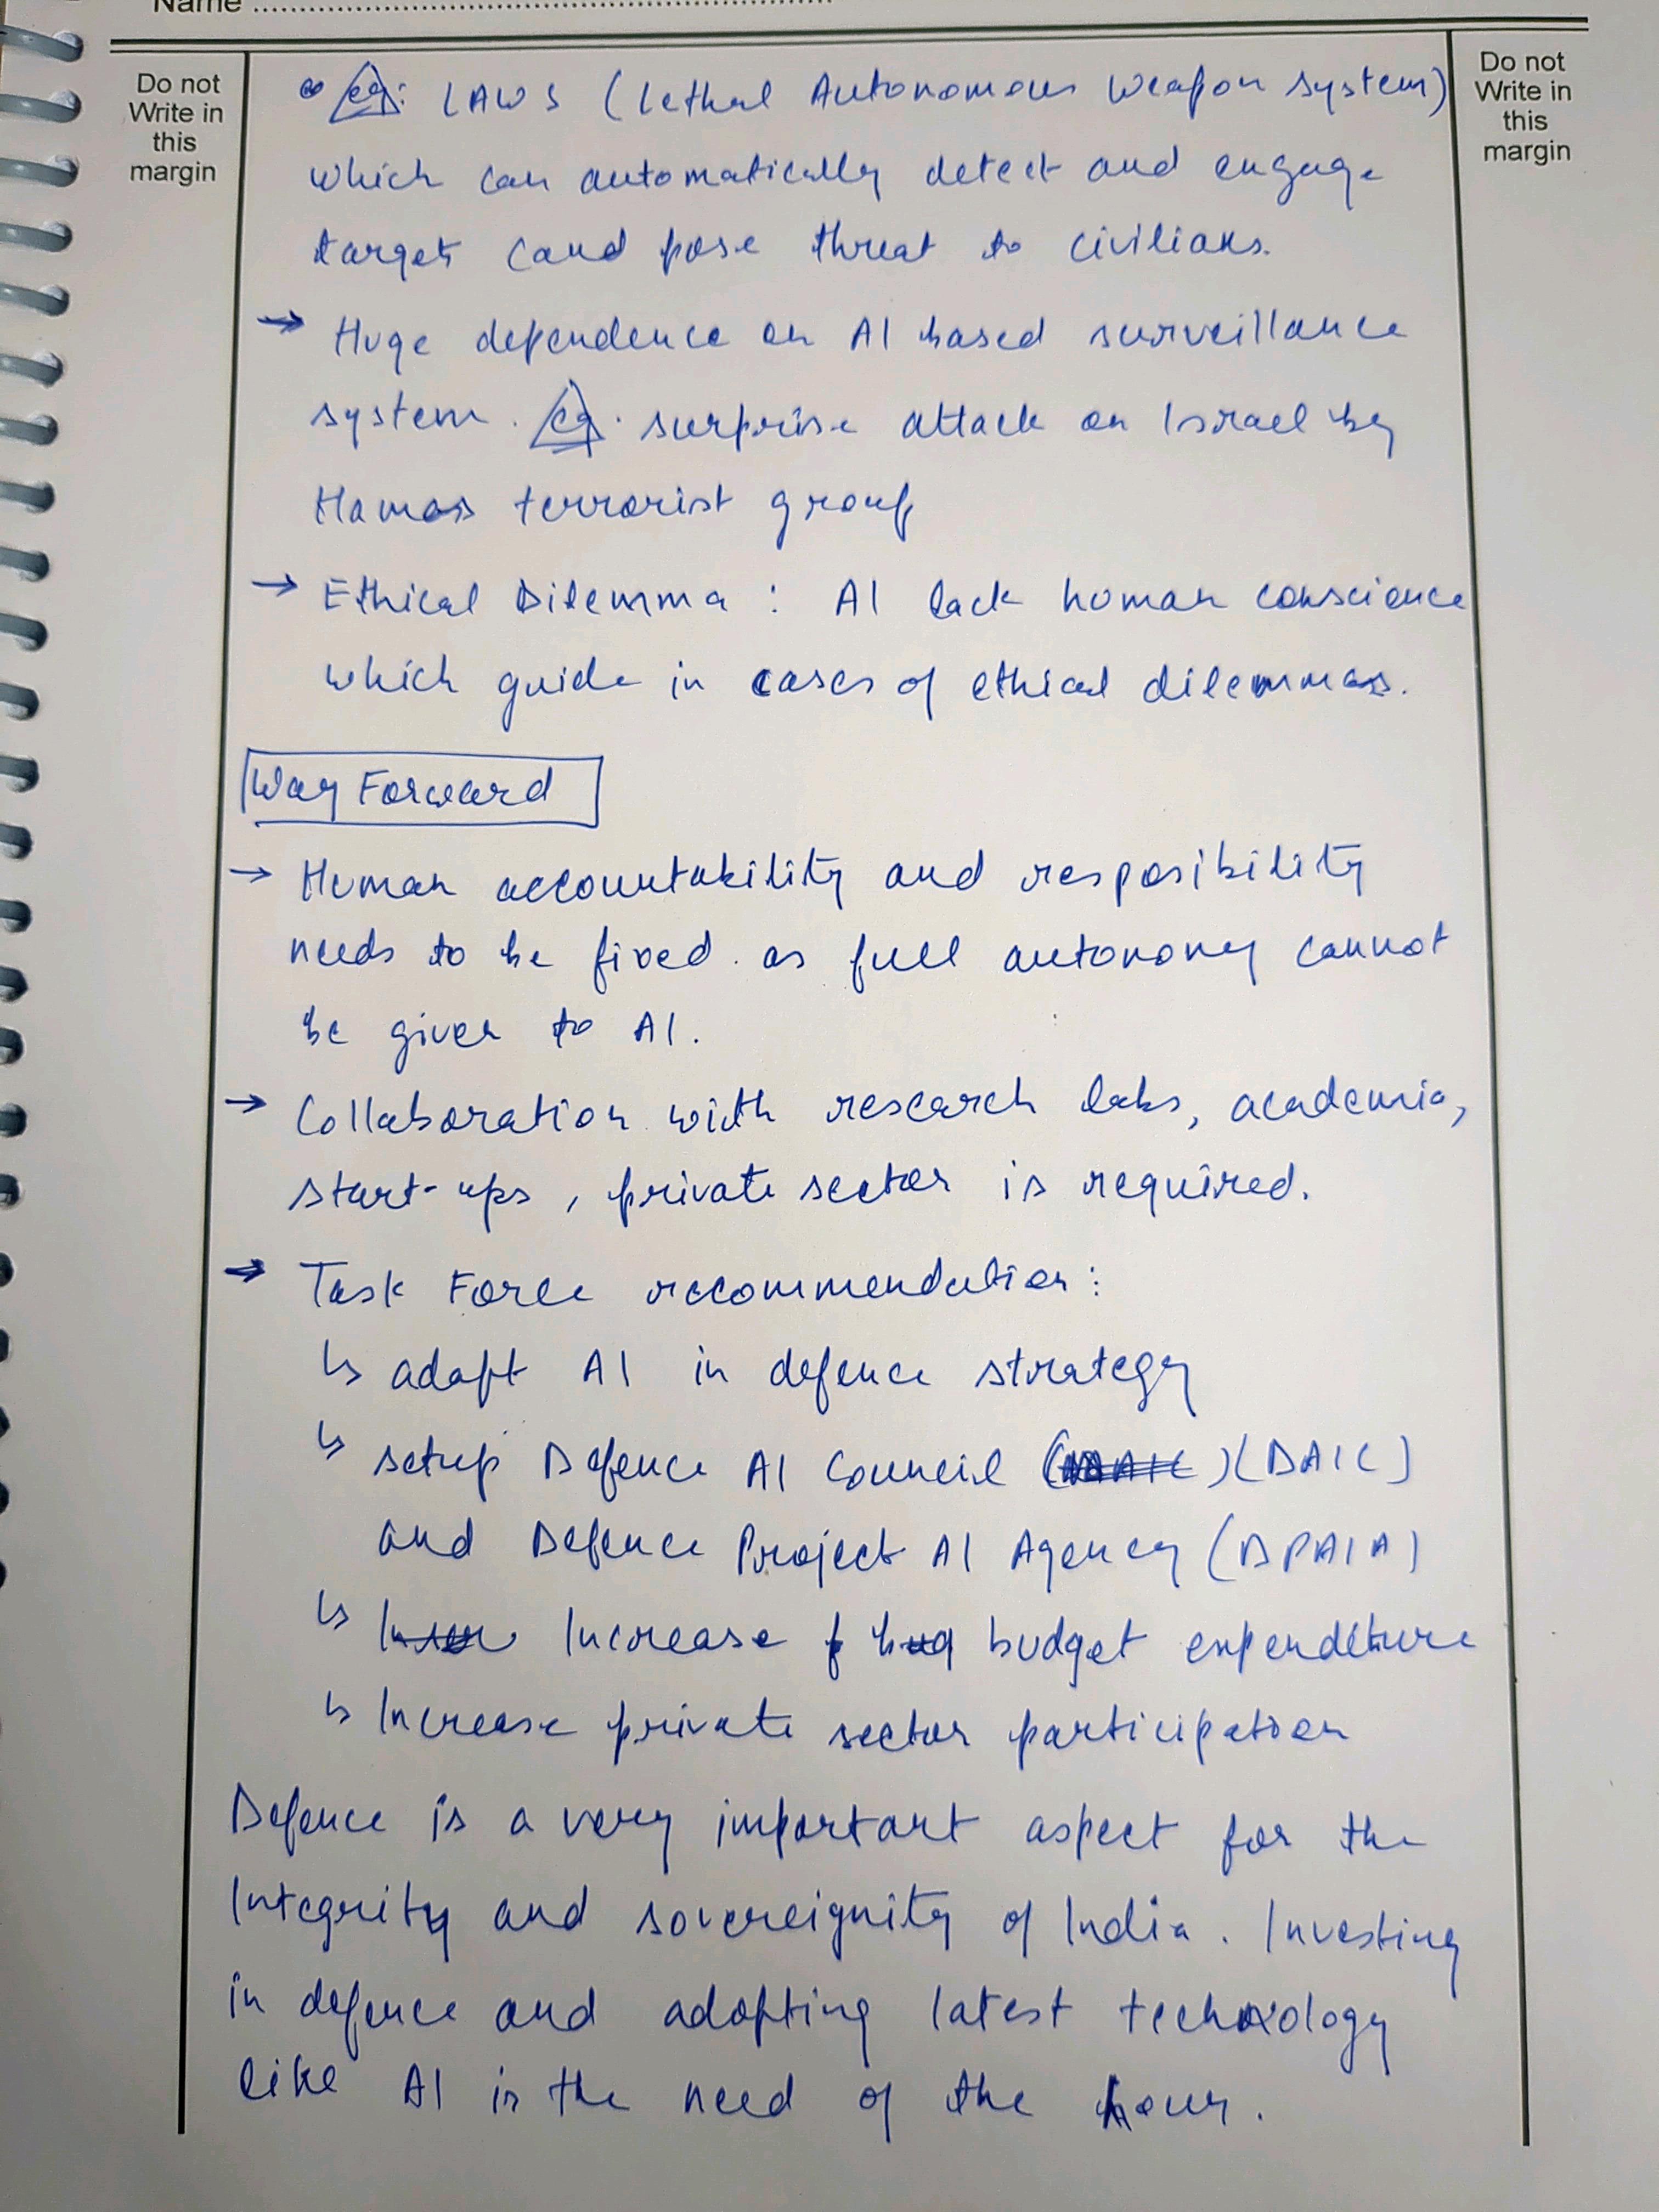 Name
Do not
Write in
this
margin
Do not
Write in
this
margin
eg: LAWS (Lethal Autonomous Weapon System)
which can automatically detect and engage
targets cand pose threat to civilians.
→ Huge dependence on AI based surveillance
system. eg. surprise attack on Israel by
Hamas terrorist group
→ Ethical Dilemma : AI lack human conscience
which guide in cases of ethical dilemmas.
Way Forward
→ Human accountability and resposibility
needs to be fixed as full autonomy cannot
be given to AI.
→ Collaboration with research labs, academia,
start-ups, private sector is required.
→ Task Force recommendation:
↳ adopt AI in defence strategy
↳ setup Defence AI Council (DAIC)
and Defence Project AI Agency (DPAIA)
↳ Increase budget expenditure
↳ Increase private sector participation
Defence is a very important aspect for the
Integrity and sovereignity of India. Investing
in defence and adopting latest technology
like AI is the need of the hour.